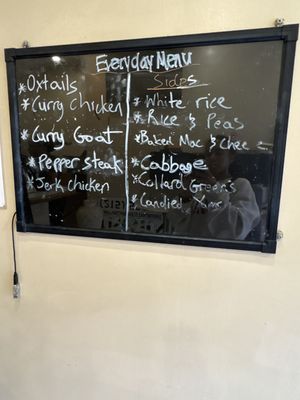 Everyday Menu
* Oxtails
* Curry Chicken
* Curry Goat
* Pepper steak
* Jerk chicken
Sides
* White rice
* Rice & Peas
* Baked Mac & Chee
* Cabbage
* Collard Greens
* Candied Yams